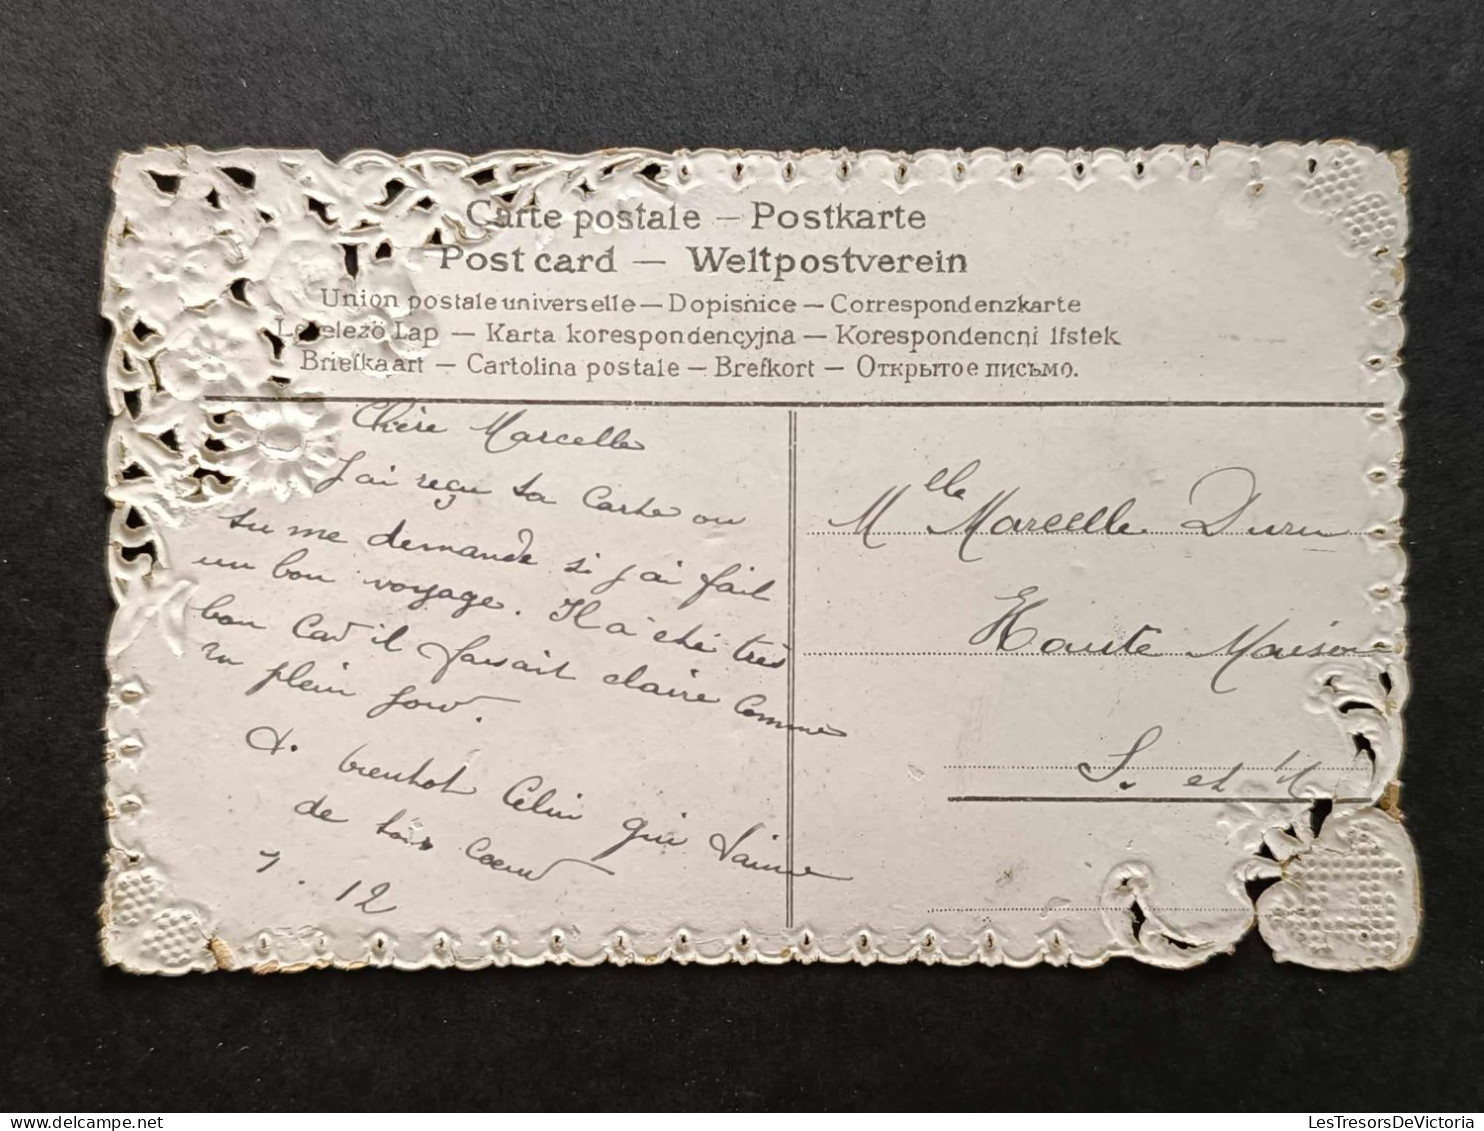 Carte postale — Postkarte
Post card — Weltpostverein
Union postale universelle — Dopisnice — Correspondenzkarte
Levelezö Lap — Karta korespondencyjna — Korespondencni listek
Briefkaart — Cartolina postale — Brefkort — Открытое письмо.
Chère Marcelle
J'ai reçu ta Carte ou
tu me demande si j'ai fait
un bon voyage. Il a été très
bon Car il faisait claire Comme
en plein jour.
A. bientot Celin qui t'aime
de tout coeur
7. 12
Melle Marcelle Duru
Haute Maison
S. et M
LesTresorsDeVictoria